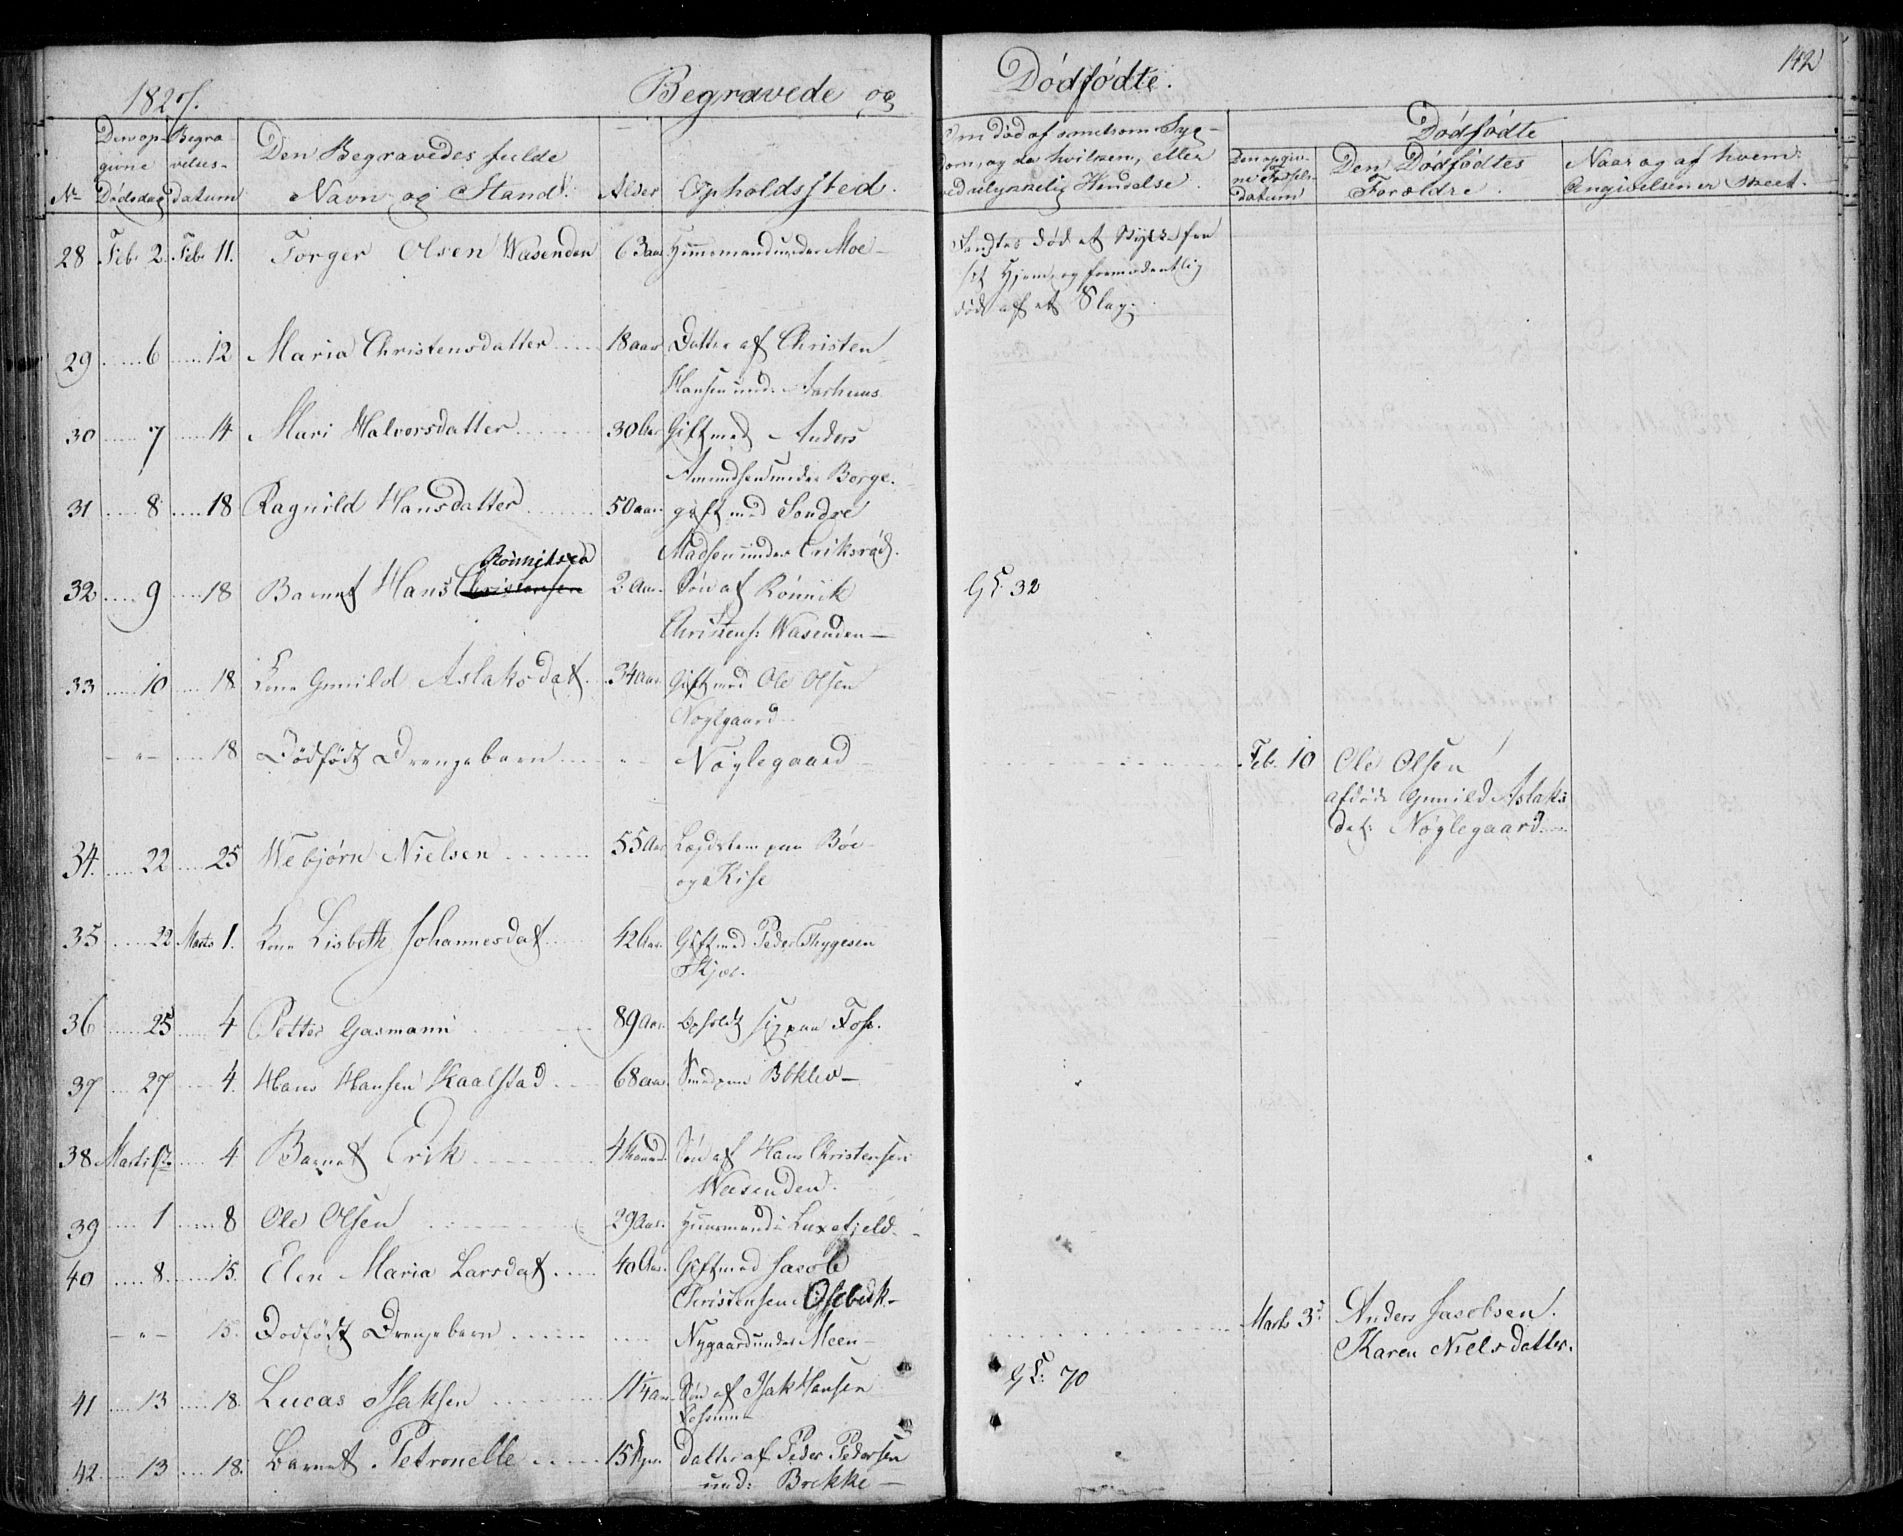 1827. Begravede og Dødfødte. 142
No
Den op-
givne
Dødsdag
Begra-
velses-
datum
Den Begravedes fulde
Navn og Stand.
Alder
Opholdssted.
Om død af smitsom Syg-
dom, og da hvilken, eller
ved ulykkelig Hendelse.
Dødfødte
Den opgiv-
ne Fødsels-
datum
Den Dødfødtes
Forældre.
Naar og af hvem
Angivelsen er skeet.
28 Feb. 2. Feb. 11. Torger Olsen Wasenden 63 aar Huusmand under Moe - Fandtes død et Stykke fra
sit Hjem, og formodentlig
død af et Slag.
29 6 12 Maria Christensdatter 18 aar Datter af Christen
Hansen und. Aarhuus
30 7 14 Mari Halvorsdatter 30 Aar Gift med Anders
Amundsen under Borge.
31 8 18 Ragnild Hansdatter 50 aar. gift med Sondre
Madsen under Eriksrød.
Rönniksen
32 9 18 Barnet Hans Christensen 2 Aar. Søn af Rönnik G L. 32
Christens: Wasenden -
33 10 18 Kone Gunild Aslaksdat. 34 Aar. Gift med Ole Olsen
Nøglgaard
- " - 18 Dödfödt Drengebarn Nøylegaard Feb. 10 Ole Olsen
afdøde Gunild Aslaks
dat: Nøglegaard
34. 22 25 Webjørn Nielsen 55 Aar Lægdslem paa Böe
og Kise
35 22 Marts 1. Kone Lisbeth Johannesdat 42 Aar. Gift med Peder Thygesen
Skjer.
36 25 4 Petter Gasmann 89 Aar. Opholdt sig paa Foss.
37 27 4. Hans Hansen Kaalstad 68 aar. Smed paa Bøklev -
38 Marts 1ste 4 Barnet Erik Søn af Hans Christensen
Wasenden.
39 1 8 Ole Olsen 29 Aar. Huusmand i Luxefjeld.
40 8 15. Elen Maria Larsdat. 40 Aar. Gift med Jacob
Christensen Osebak -
- " - 15. Dodfödt Drengebarn Nygaard under Meen - Marts 3. Anders Jacobsen.
Karen Nielsdatter.
41 13 18. Lucas Isaksen 1 1/4 aar Søn af Isak Hansen G L: 70
42 13 18. Barnet Petronelle 15 Datter af Peder Pedersen
und: Brekke -